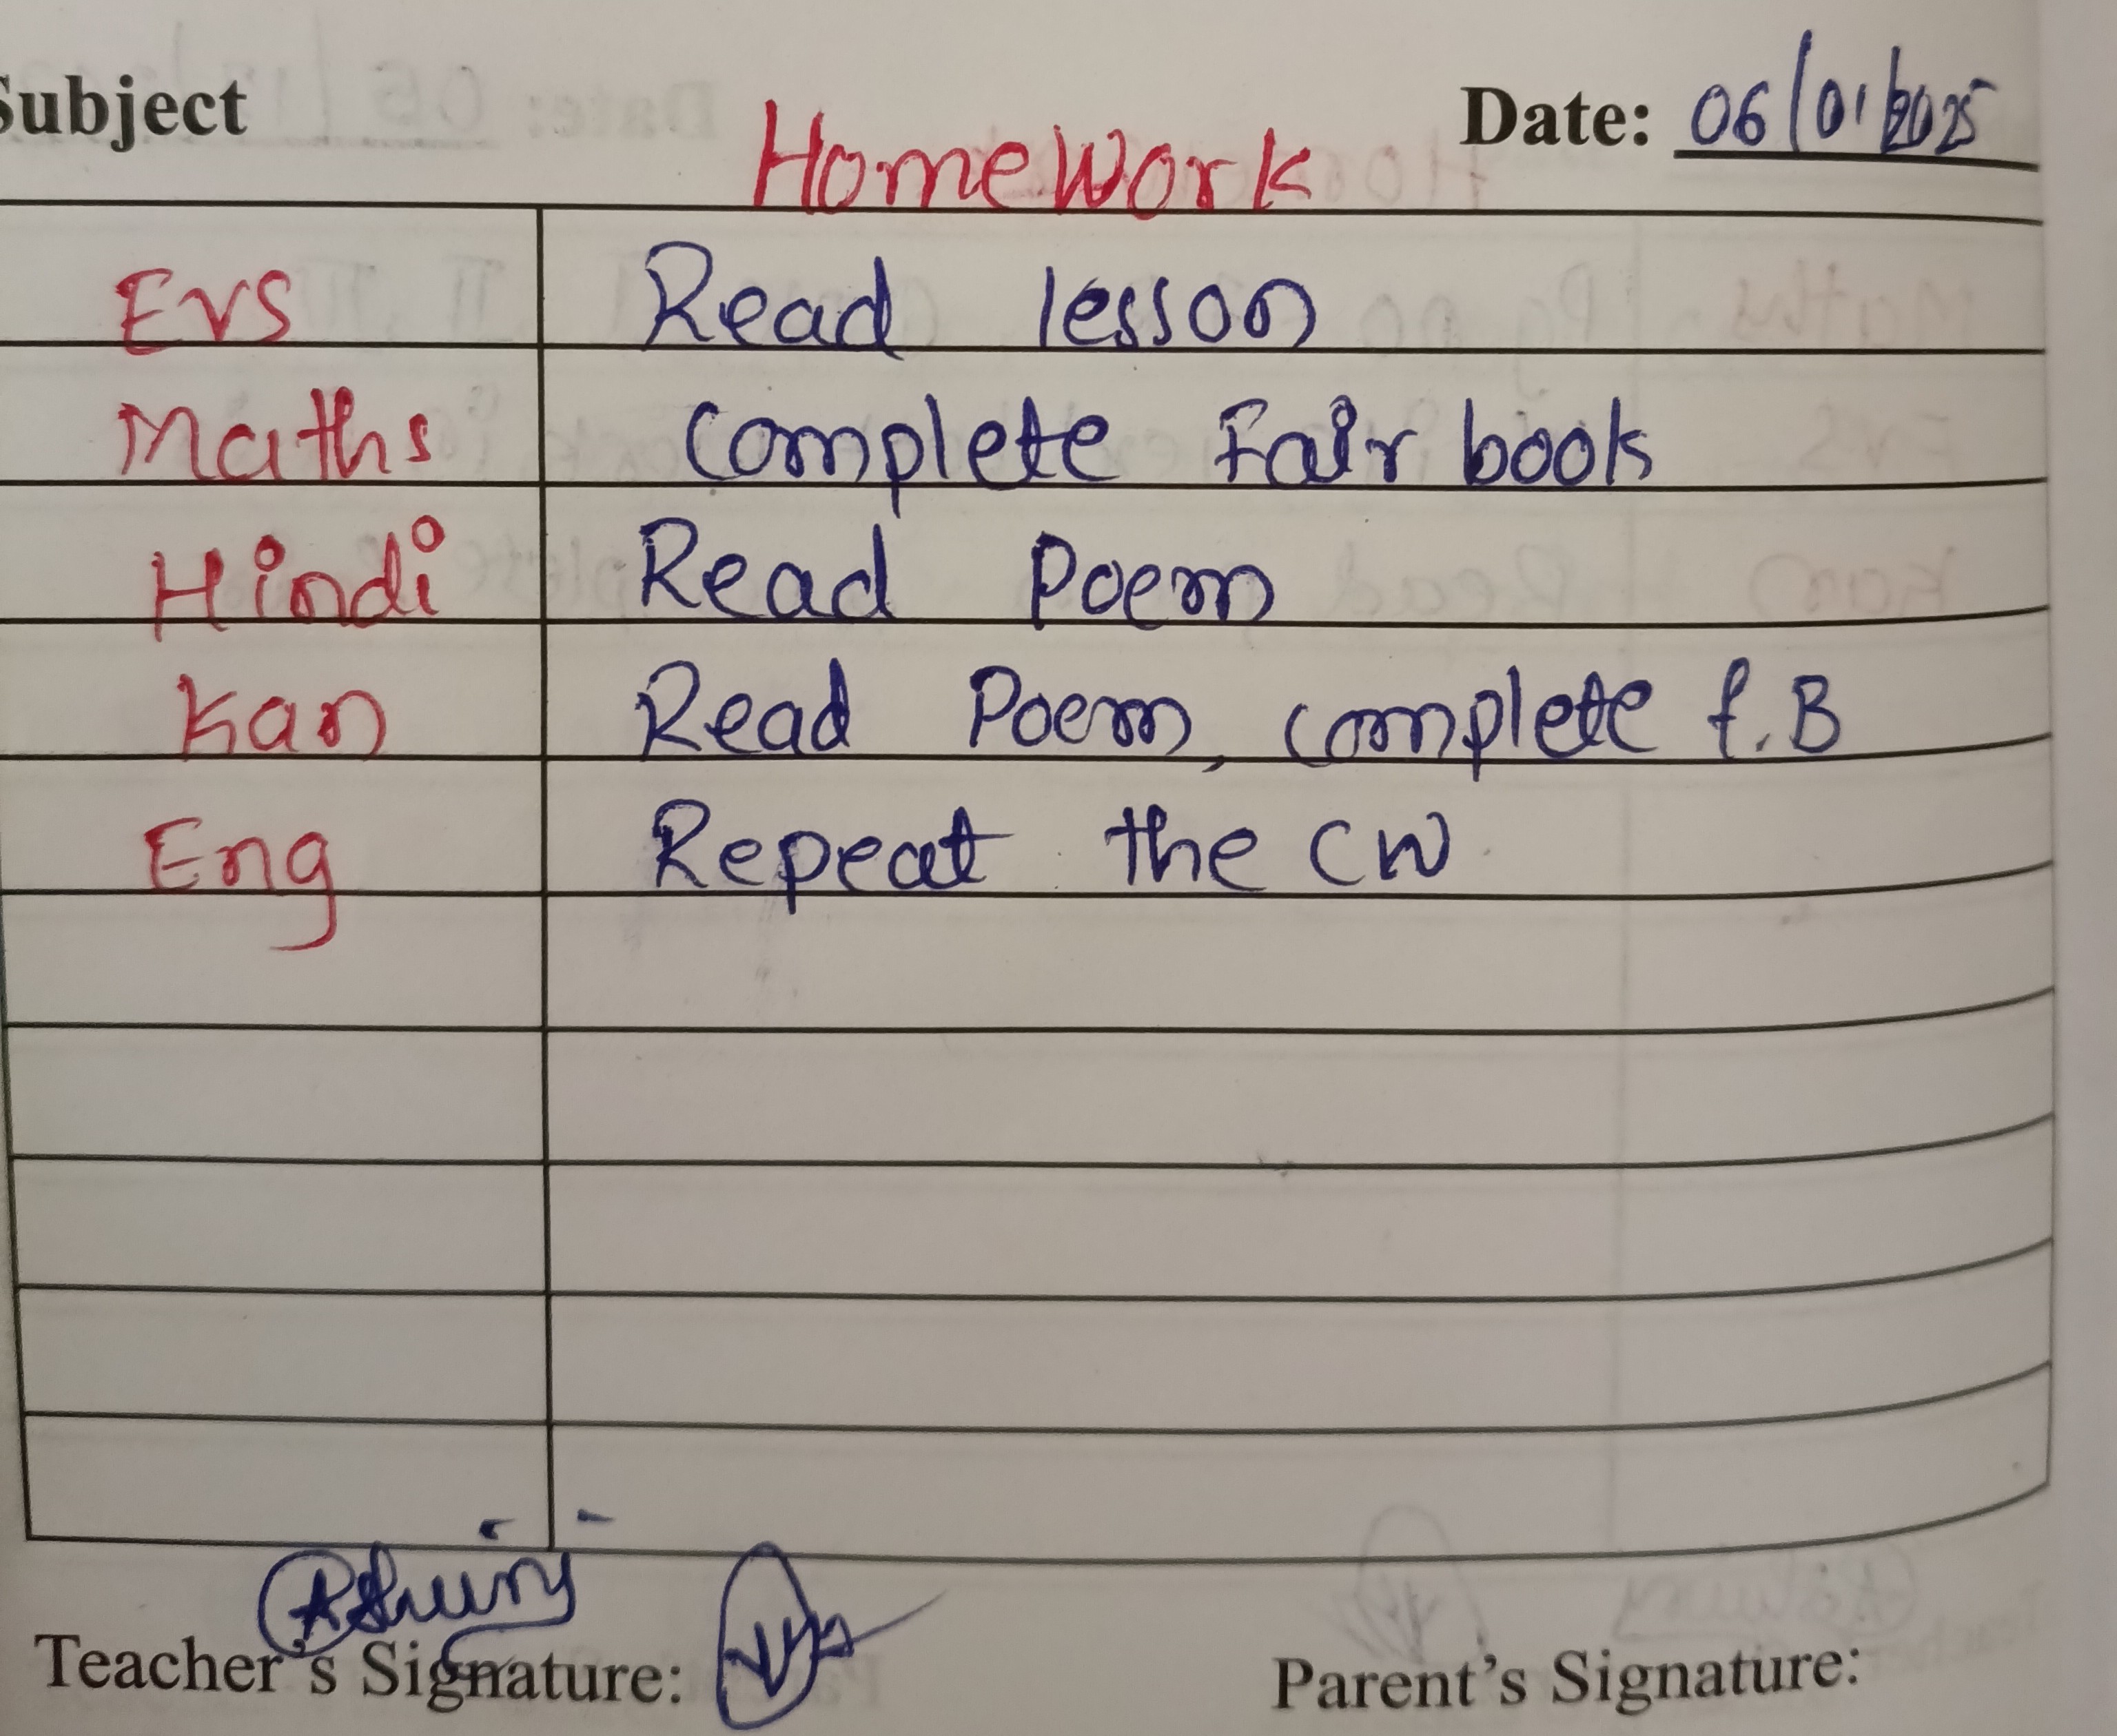 Subject Date: 06/01/2025
HomeWork
EVS Read lesson
Maths Complete Fair book
Hindi Read Poem
Kan Read Poem, complete f.B
Eng Repeat the CW
Teacher's Signature: Parent's Signature: